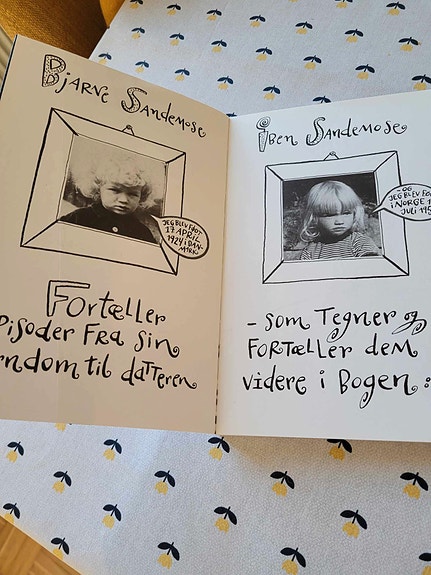 Bjarne Sandemose
JEG BLEV FØDT
17. APRIL
1924 i DAN-
MARK
Fortæller
pisoder Fra sin
rndom til datteren
Iben Sandemose
- OG
JEG BLEV
i NORGE
JULI
- som Tegner og
FORTÆLLER DEM
videre i Bogen :